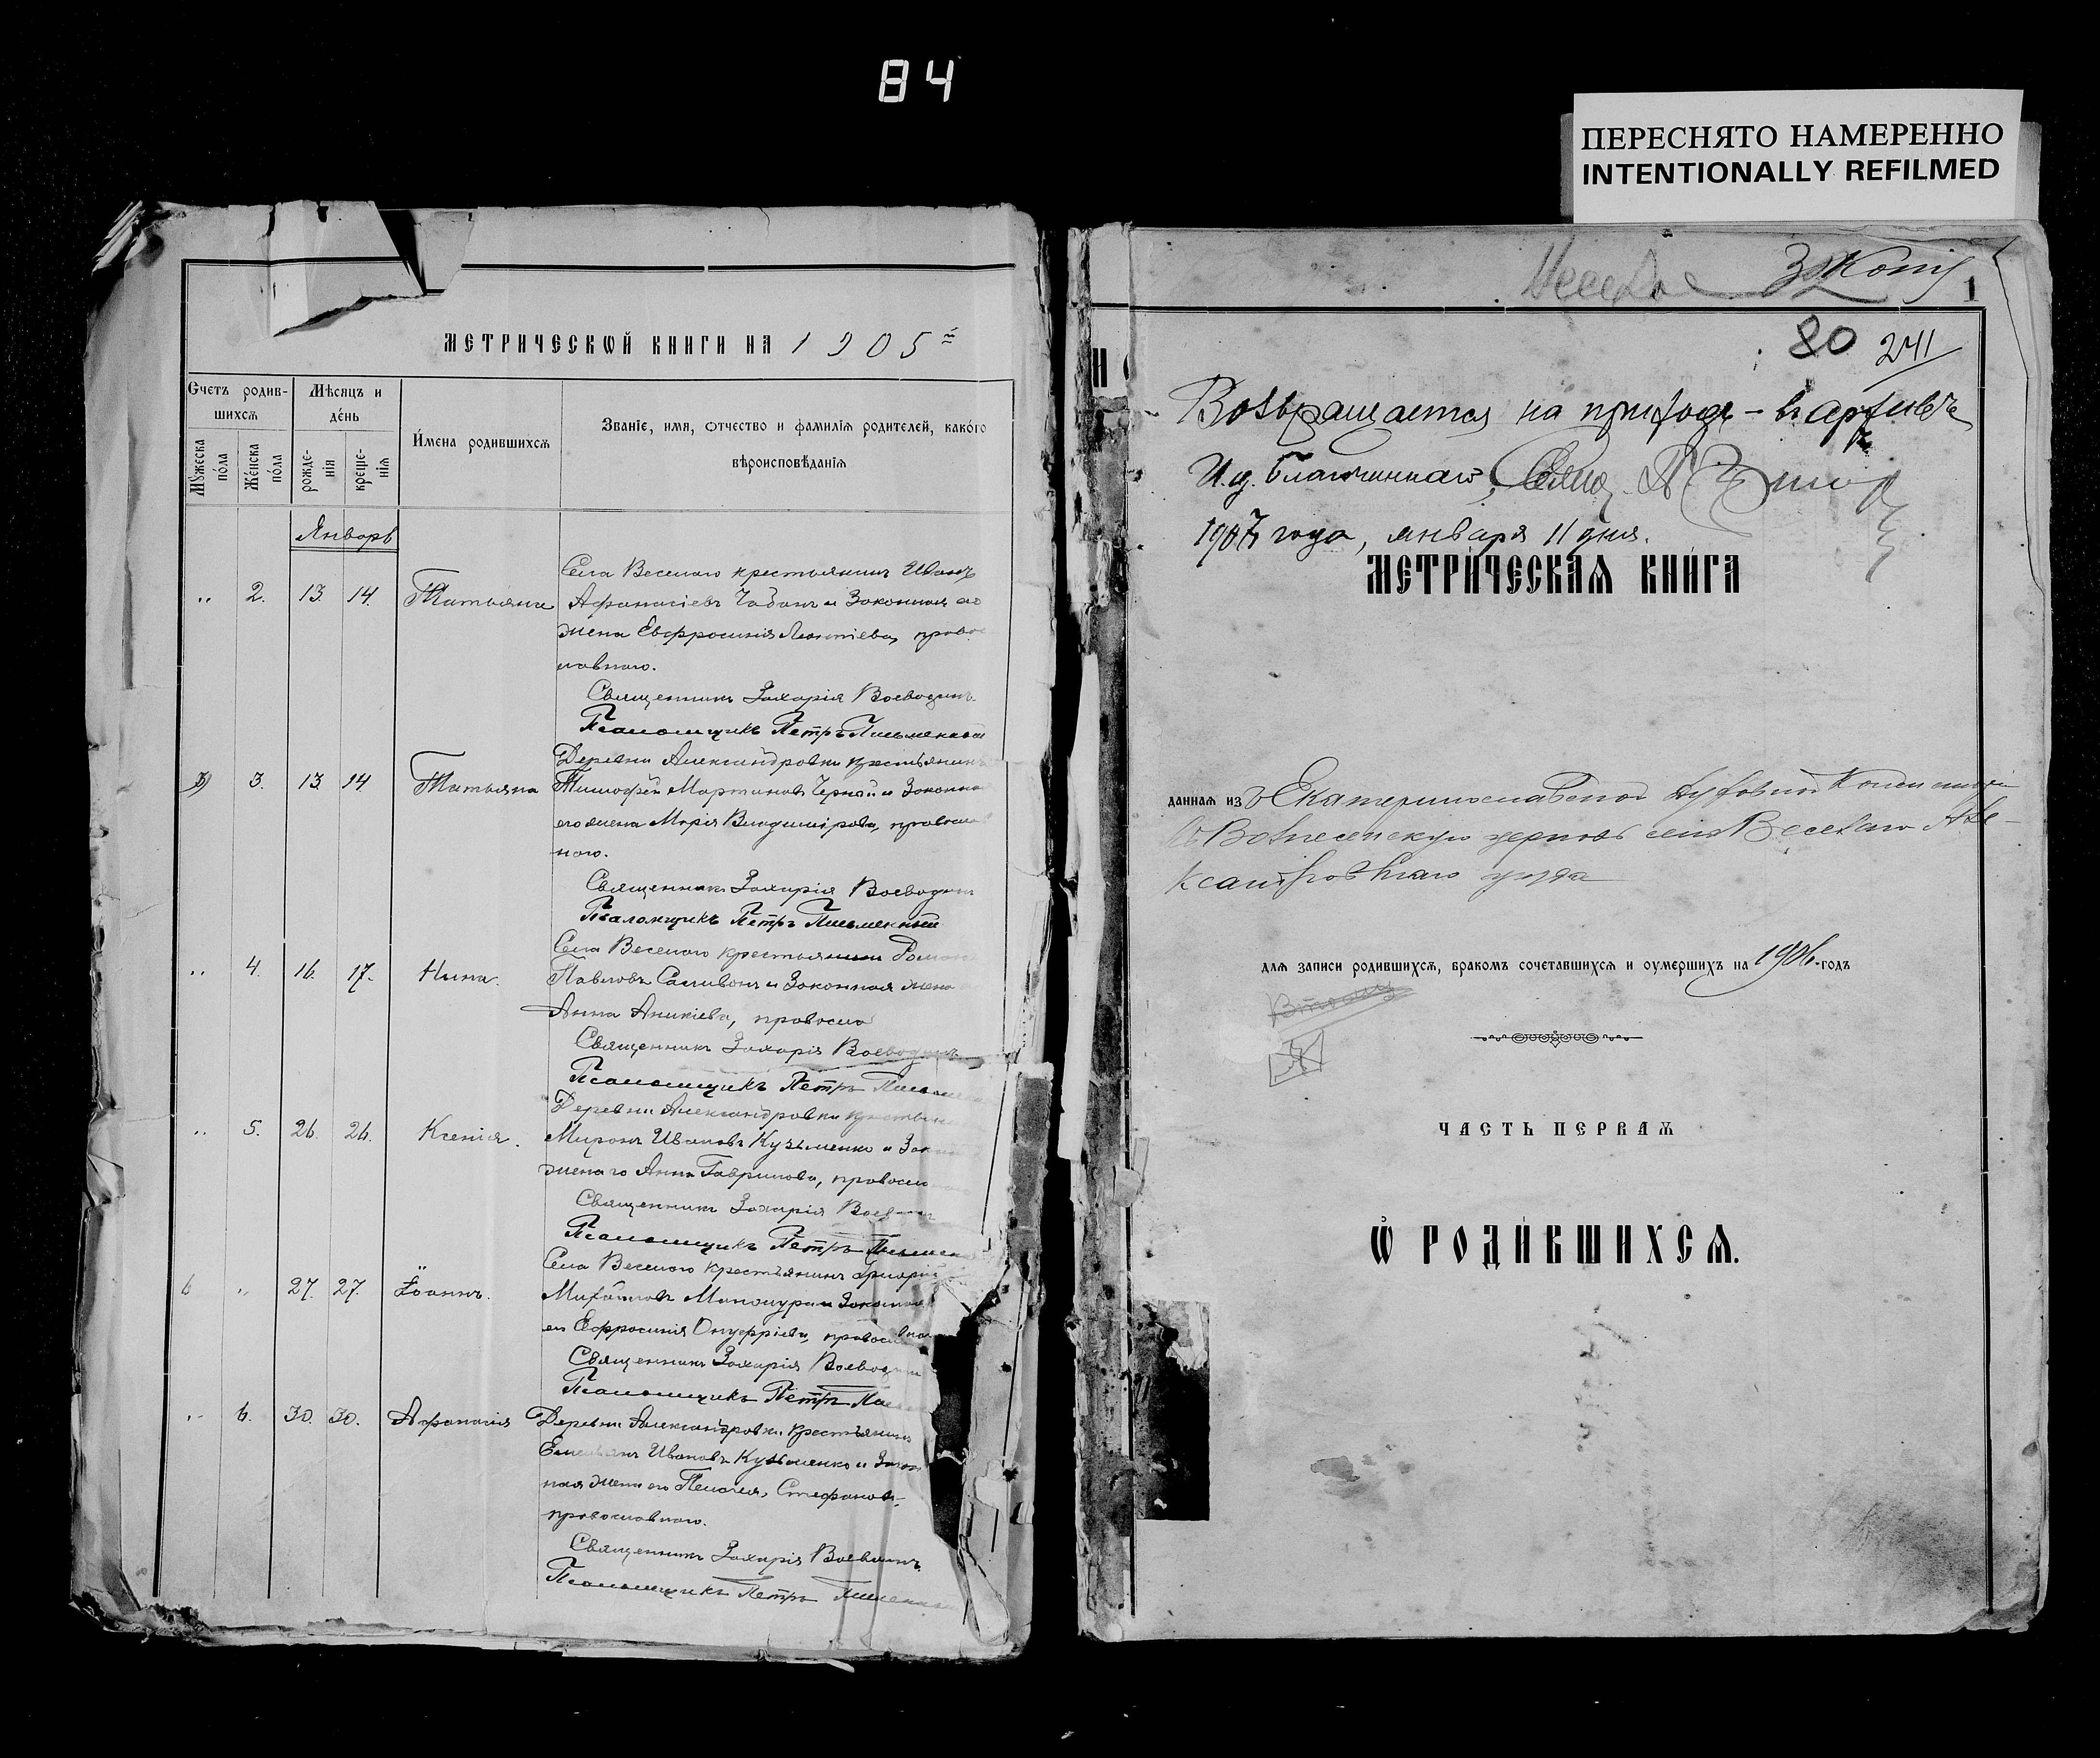 84
ПЕРЕСНЯТО НАМЕРЕННО
INTENTIONALLY REFILMED
МЕТРИЧЕСКѠЙ КНИГИ НА 1905й
Счетъ родившихсѧ
Мѣсяцъ и де́нь
И́мена родившихсѧ
Званїе, имя, ѻтчество и фамилїѧ родителей, како́го вѣроисповѣданїѧ
Мꙋжеска по́ла
Же́нска по́ла
рожденїя
крещенїѧ
Январь
Села Веселаго крестьянинъ Иванъ
„ 2. 13. 14. Татьяна Афанасіевъ Чабанъ и Законная его
жена Евфросинія Леонтіева, право
славнаго.
Священникъ Захарія Воеводинъ
Псаломщикъ Петръ Письменный
Деревни Александровки крестьянинъ
„ 3. 13. 14 Татьяна Тимофей Мартиновъ Черный и Законная
его жена Марія Владимірова, православ
наго.
Священникъ Захарія Воеводинъ
Псаломщикъ Петръ Письменный
Села Веселаго крестьянинъ Романъ
„ 4. 16. 17. Нина. Павловъ Саливонъ и Законная жена
Анна Аникіева, правосла
Священникъ Захарія Воеводинъ
Псаломщикъ Петръ Письмен
Деревни Александровки крестьян
„ 5. 26. 26. Ксенія. Миронъ Ивановъ Кузьменко и Зак
жена его Анна Гаврилова, правосла
Священникъ Захарія Воеводин
Псаломщикъ Петръ Письмен
Села Веселаго крестьянинъ Григорій
6 „ 27. 27. Іоаннъ. Михайловъ и Законная
его Евфросинія Онуфріева, православна
Священникъ Захарія Воеводин
Псаломщикъ Петръ
„ 6. 30. 30. Афанасія Деревни Александровки крестьянинъ
Емельянъ Ивановъ Кузьменко и Закон
ная жена его Пелагія Стефанова,
православнаго.
Священникъ Захарія Воеводинъ
Псаломщикъ Петръ Письменный
Веселое Копія
1
80 241
Возвращается на приходъ – въ архивъ
И. д. благочиннаго, Свящ.
1907 года, января 11 дня.
МЕТРИ́ЧЕСКАѦ КНИ́ГА
даннаѧ из Екатеринославской Духовной Консисторіи
въ Вознесенскую церковь села Веселаго Але-
ксандровскаго уезда
длѧ записи родившихсѧ, бракомъ сочетавшихсѧ и оумершихъ на 1906 годъ
ЧАСТЬ ПЕРВАѦ
Ѽ РОДИ́ВШИХСѦ.